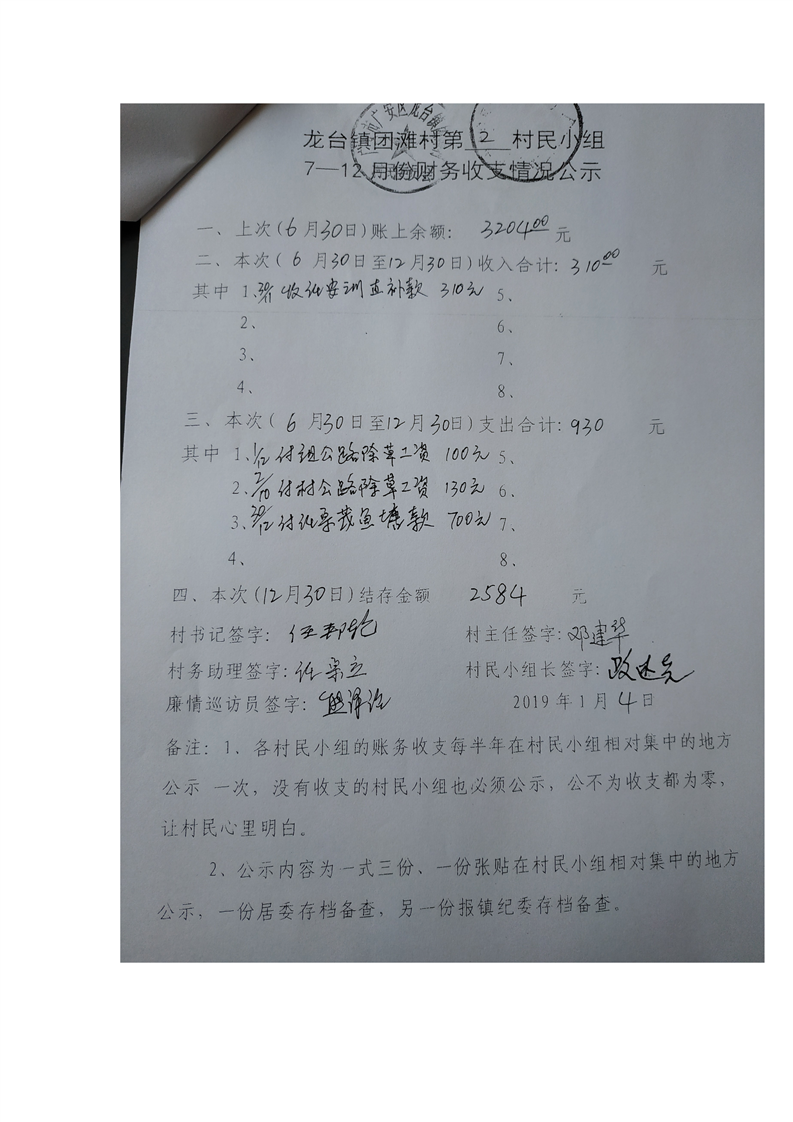 龙台镇团滩村第 2 村民小组
7—12月份财务收支情况公示
一、上次(6月30日)账上余额： 3204.00 元
二、本次( 6 月30日至12月30日)收入合计: 310.00 元
其中 1、 直补款 310元 5、
2、 6、
3、 7、
4、 8、
三、本次( 6 月30日至12月30日)支出合计: 930 元
其中 1、1/12 付组公路除草工资 100元 5、
2、2/10 付村公路除草工资 130元 6、
3、30/12 付 鱼塘款 700元 7、
4、 8、
四、本次(12月30日)结存金额 2584 元
村书记签字： 村主任签字: 邓建华
村务助理签字: 村民小组长签字:
廉情巡访员签字： 2019年1月 4 日
备注：1、各村民小组的账务收支每半年在村民小组相对集中的地方
公示 一次，没有收支的村民小组也必须公示，公不为收支都为零，
让村民心里明白。
2、公示内容为一式三份、一份张贴在村民小组相对集中的地方
公示，一份居委存档备查，另一份报镇纪委存档备查。